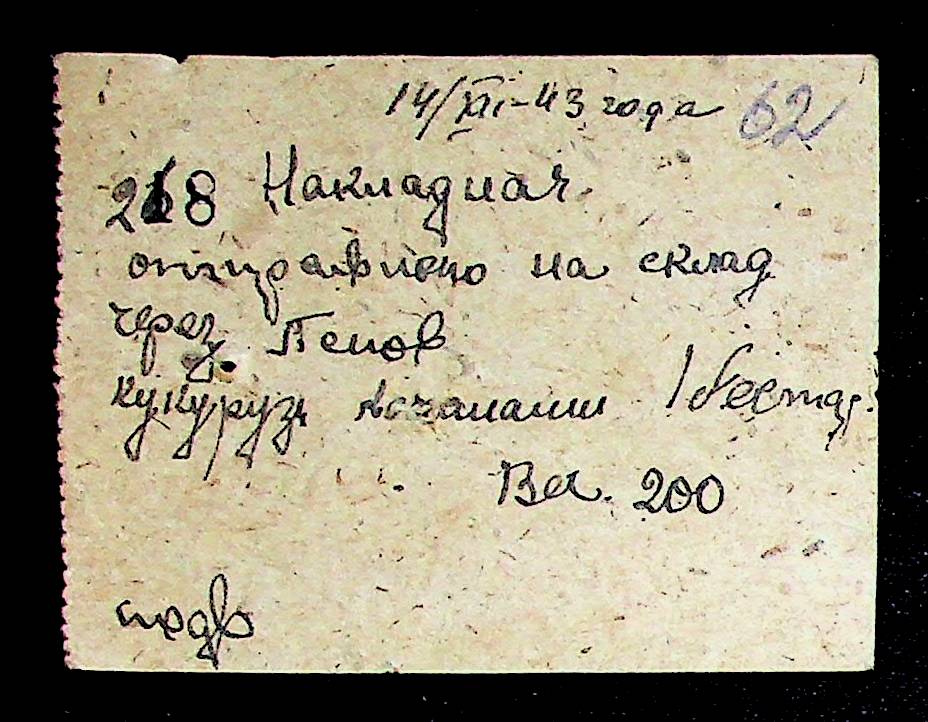 14/XII-43 года 62
218 Накладная
отправлено на склад
через Попов
кукурузы кочанами 1 бестар.
Ва. 200